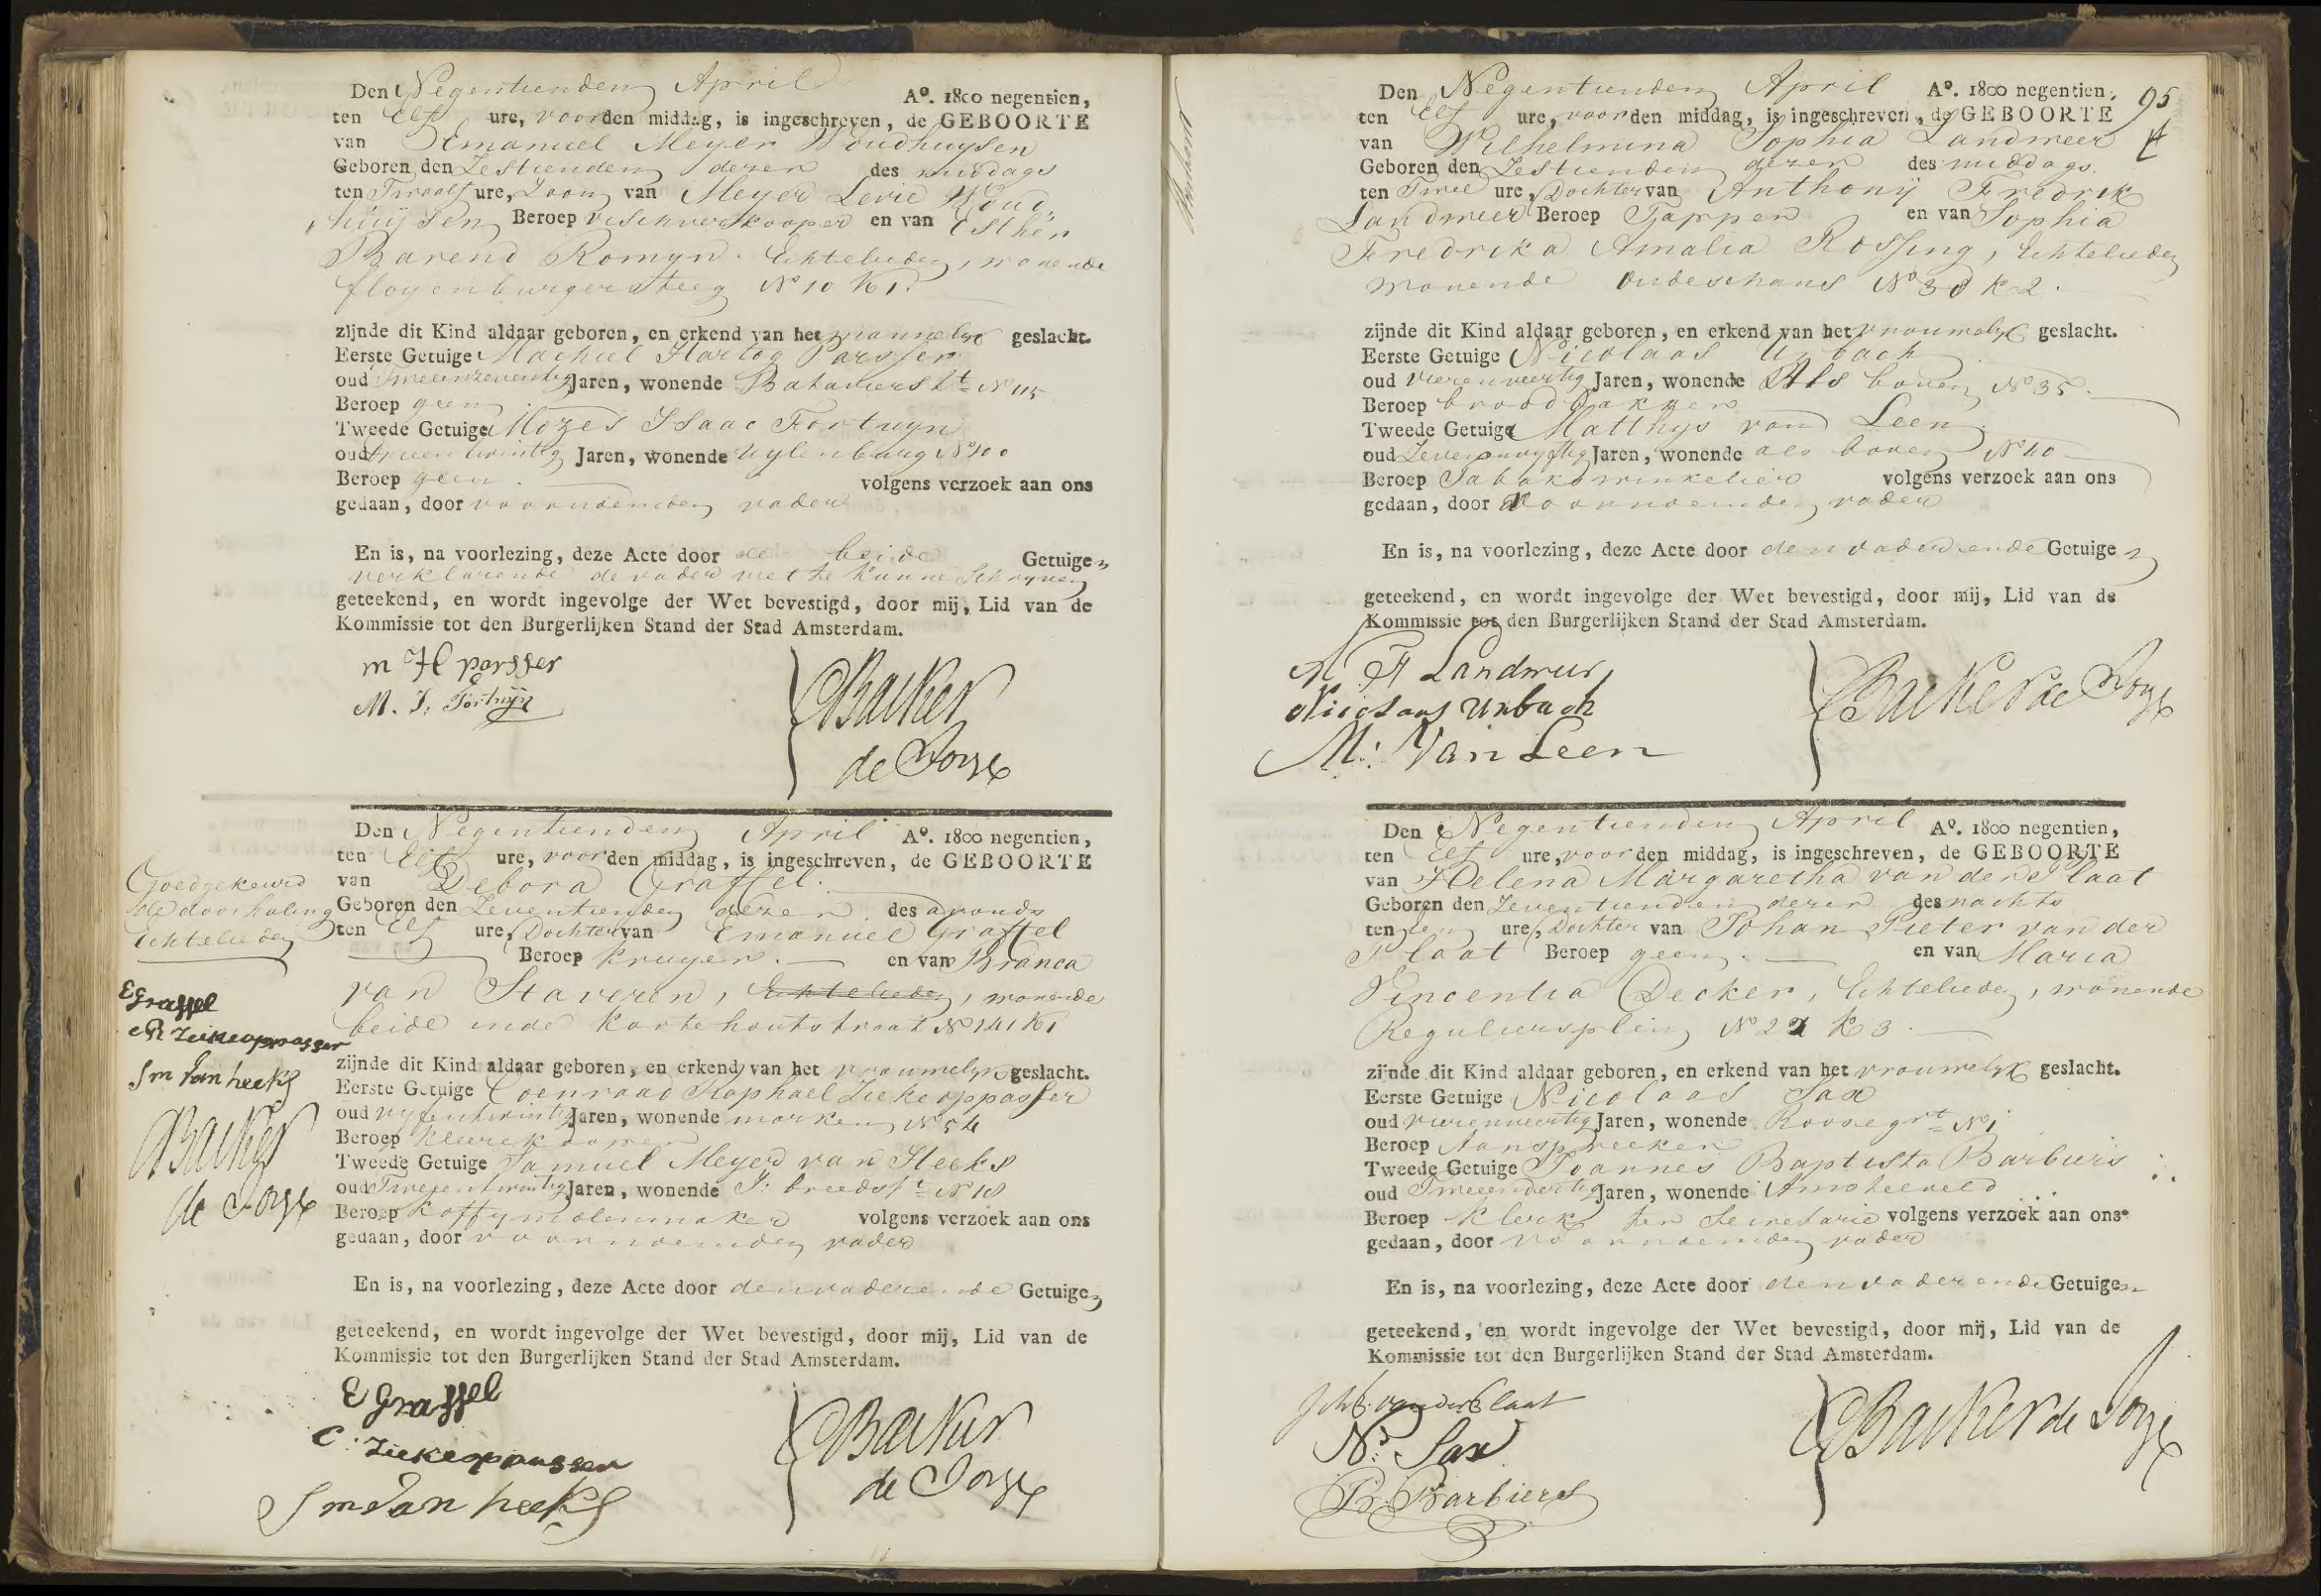 Den Negentienden April Aº. 1800 negentien,
ten Elf ure, voor den middag, is ingeschreven, de GEBOORTE
van Emanuel Meyer Woudhuysen
Geboren den Zestienden dezer des middags
ten Twaalf ure, Zoon van Meyer Levie Woud
huijsen Beroep vischverkooper en van Esther
Barend Romyn. Echtelieden, wonende
floyenburgersteeg Nº 10 K 1.
zijnde dit Kind aldaar geboren, en erkend van het mannelyk geslacht.
Eerste Getuige Machiel Hartog Parsser
oud Tweeenzeventig Jaren, wonende Batavierst Nº 115
Beroep geen
Tweede Getuige Mozes Isaac Fortuyn
oud Jaren, wonende Uylenburg Nº 100
Beroep geen volgens verzoek aan ons
gedaan, door voornoemden vader
En is, na voorlezing, deze Acte door de beide Getuigen
verklarende de vader niet te kunne Schryven
geteekend, en wordt ingevolge der Wet bevestigd, door mij, Lid van de
Kommissie tot den Burgerlijken Stand der Stad Amsterdam.
m H parsser
M. I. Fortuijn
Backer
de Jonge
Den Negentienden April Aº. 1800 negentien,
ten Elf ure, voor den middag, is ingeschreven, de GEBOORTE
van Debora Graffel.
Geboren den Zeventienden dezer des avonds
ten Elf ure, Dochter van Emanuel Graffel
Beroep Kruyer. en van Branca
van Staveren, Echtelieden, wonende
beide inde Korte houtstraat Nº 141 K 1
Goedgekeurd
de doorhaling
Echtelieden
E Graffel
C R Ziekeoppasser
S m van heeks
Backer
de Jonge
zijnde dit Kind aldaar geboren, en erkend van het vrouwelyk geslacht.
Eerste Getuige Coenraad Raphael Ziekeoppasser
oud vyfentwintig Jaren, wonende marken Nº 54
Beroep kleerekooper
Tweede Getuige Samuel Meyer van Heeks
oud Tweeentwintig Jaren, wonende J: breedst Nº 18
Beroep koffymolenmaker volgens verzoek aan ons
gedaan, door voornoemden vader
En is, na voorlezing, deze Acte door den vader ende Getuigen
geteekend, en wordt ingevolge der Wet bevestigd, door mij, Lid van de
Kommissie tot den Burgerlijken Stand der Stad Amsterdam.
E Graffel
C: Ziekeoppasser
S m van heeks
Backer
de Jonge
95
Den Negentienden April Aº. 1800 negentien,
ten Elf ure, voor den middag, is ingeschreven, de GEBOORTE
van Wilhelmina Sophia Landmeer
Geboren den Zestienden dezer des middags
ten Twee ure, Dochter van Anthonij Fredrik
Landmeer Beroep Tapper en van Sophia
Fredrika Amalia Rossing, Echtelieden
wonende Oudeschans Nº 38 K 2.
zijnde dit Kind aldaar geboren, en erkend van het vrouwelyk geslacht.
Eerste Getuige Nicolaas Urbach
oud vierenveertig Jaren, wonende Als boven Nº 35.
Beroep broodbakker
Tweede Getuige Matthys van Leen
oud Zevenenvyftig Jaren, wonende als boven Nº 40
Beroep Tabakswinkelier volgens verzoek aan ons
gedaan, door voornoemden vader
En is, na voorlezing, deze Acte door den vader ende Getuigen
geteekend, en wordt ingevolge der Wet bevestigd, door mij, Lid van de
Kommissie tot den Burgerlijken Stand der Stad Amsterdam.
A F Landmeer
Nicolaas Urbach
M: Van Leen
Backer de Jonge
Den Negentienden April Aº. 1800 negentien,
ten Elf ure, voor den middag, is ingeschreven, de GEBOORTE
van Helena Margaretha van der Plaat
Geboren den Zeventienden dezer des nachts
ten een ure, Dochter van Johan Pieter van der
Plaat Beroep geen. en van Maria
Vincentia Decker, Echtelieden, wonende
Reguliersplein Nº 27 K 3.
zijnde dit Kind aldaar geboren, en erkend van het vrouwelyk geslacht.
Eerste Getuige Nicolaas Sax
oud vierenveertig Jaren, wonende Roosegrt Nº 1
Beroep Aanspreeker
Tweede Getuige Joannes Baptista Barbiers
oud Tweeendertig Jaren, wonende Amstelveld
Beroep Klerk ter Secretarie volgens verzoek aan ons
gedaan, door voornoemden vader
En is, na voorlezing, deze Acte door den vader ende Getuigen
geteekend, en wordt ingevolge der Wet bevestigd, door mij, Lid van de
Kommissie tot den Burgerlijken Stand der Stad Amsterdam.
van der Plaat
Ns. Sax
Barbiers
Backer de Jonge